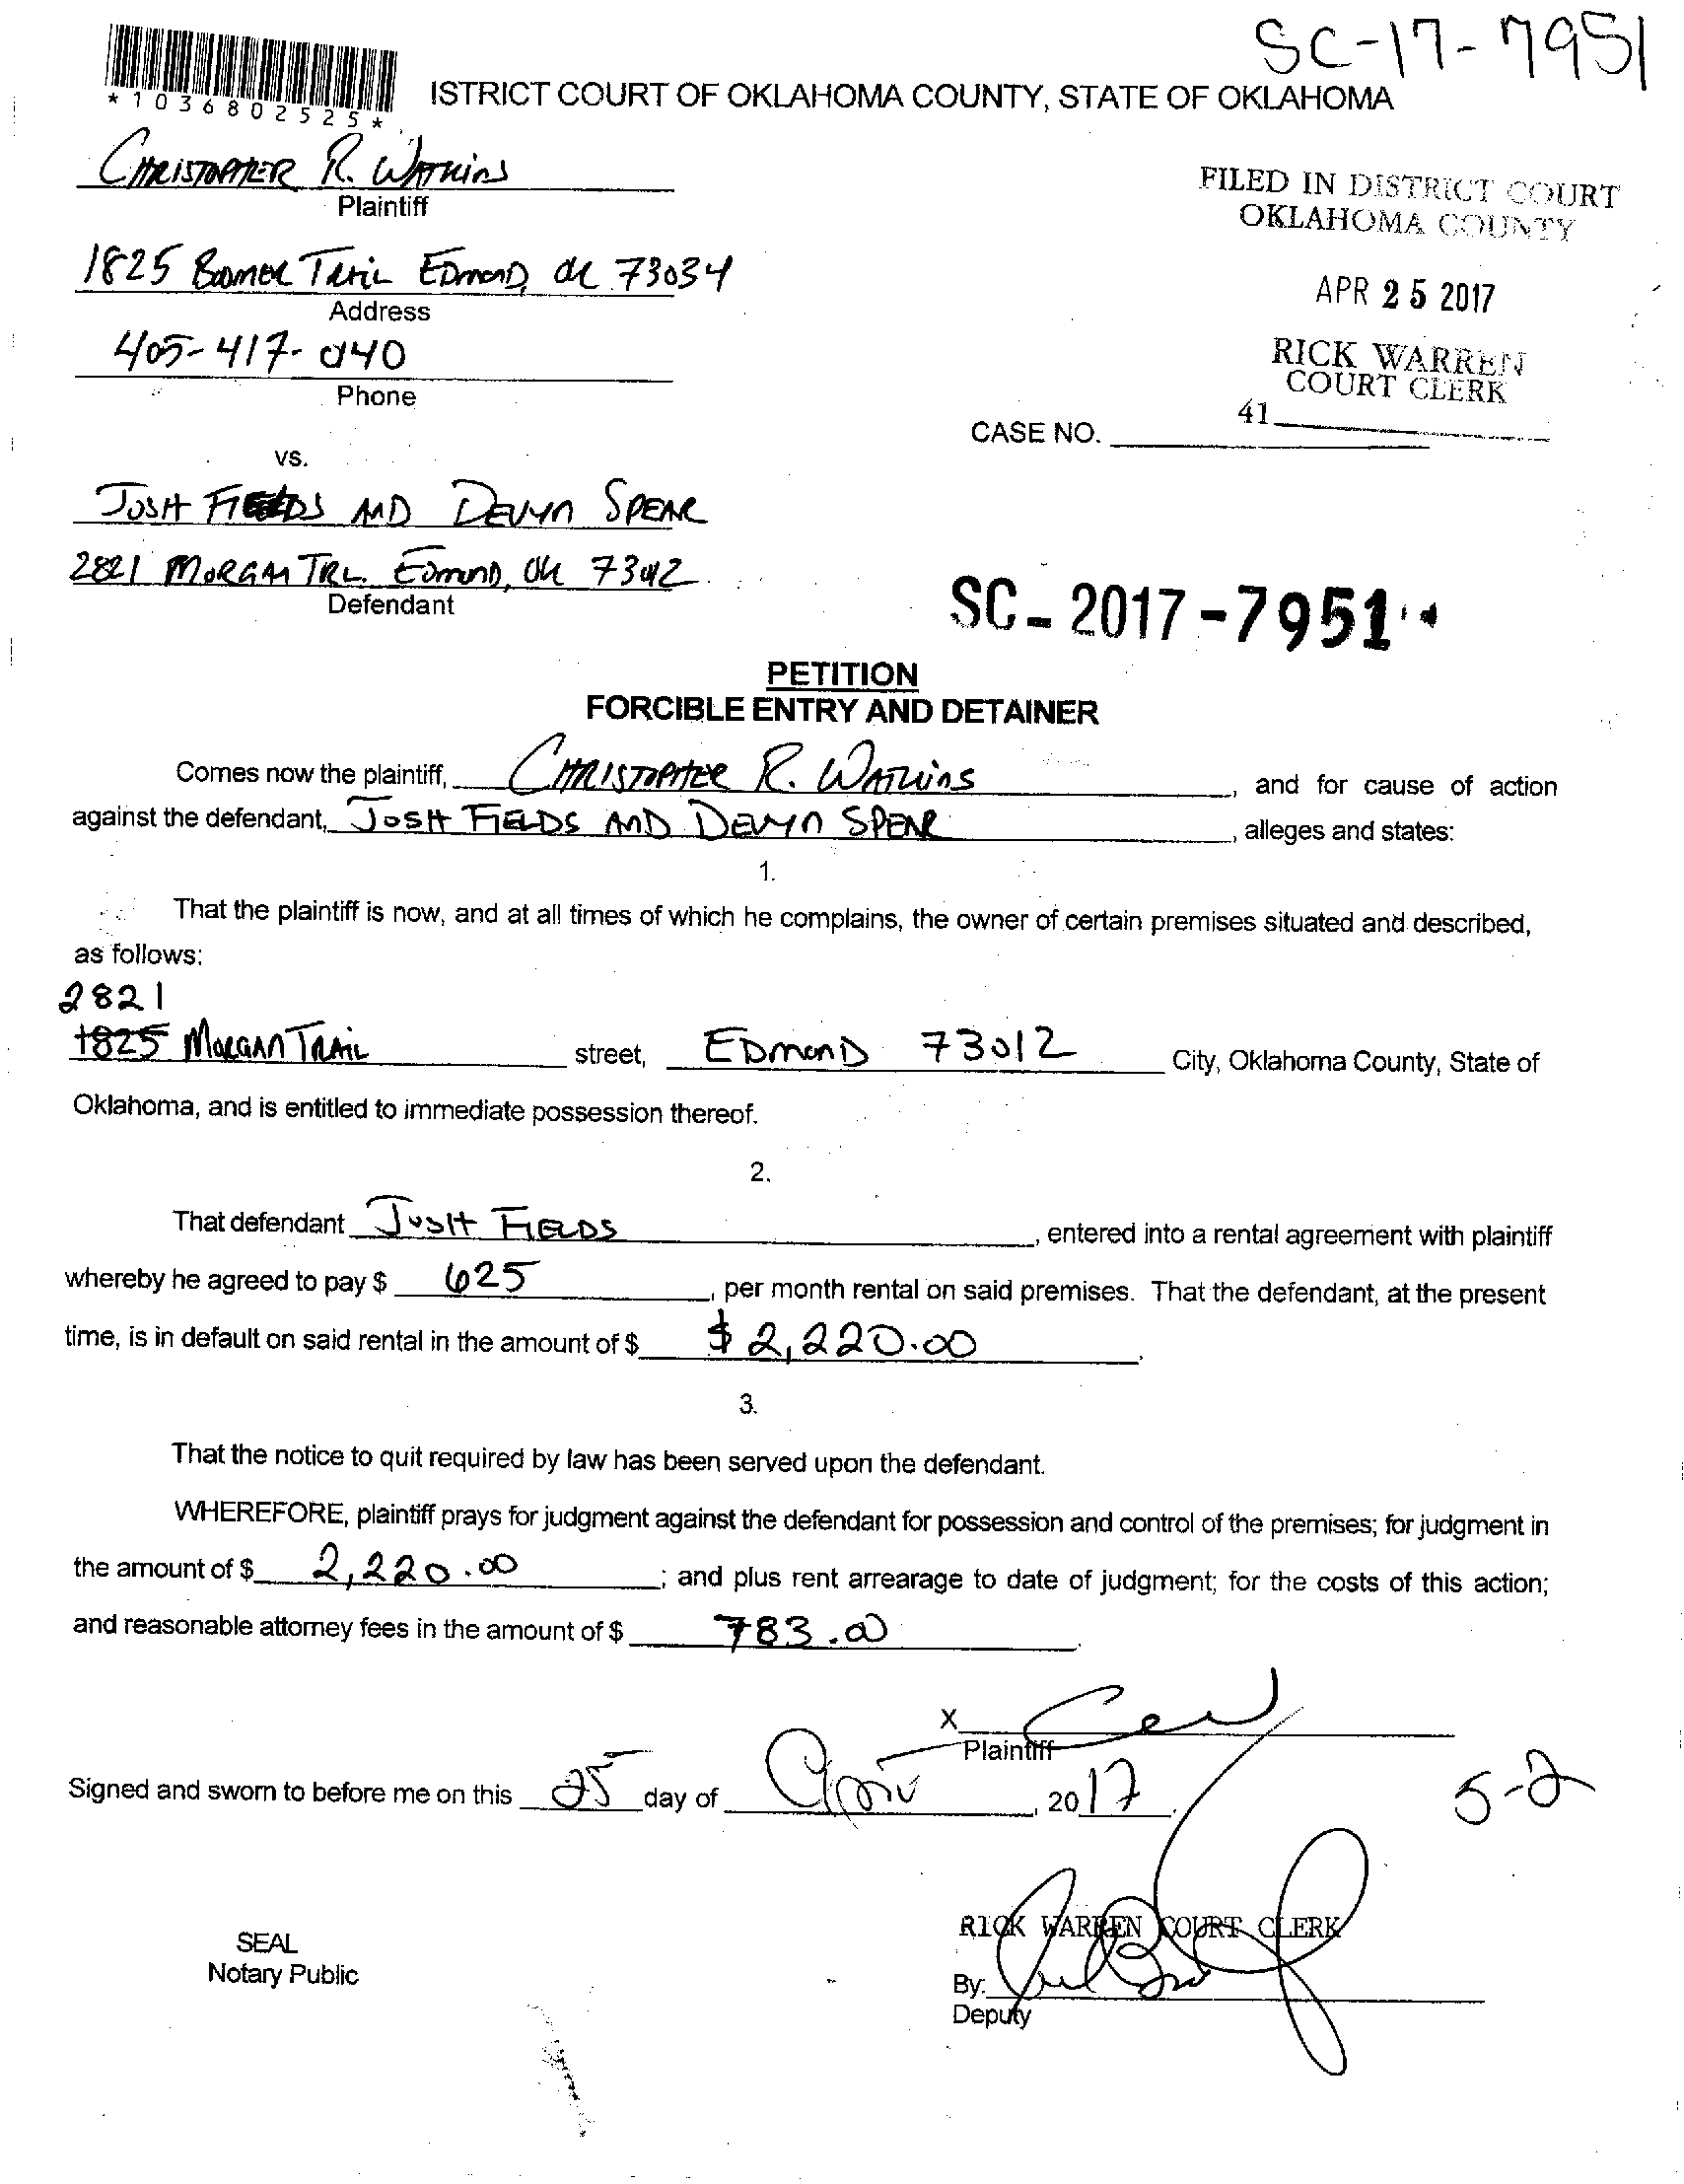 SC-17-7951
*1036802525*
ISTRICT COURT OF OKLAHOMA COUNTY, STATE OF OKLAHOMA
CHRISTOPHER R. WATKINS
Plaintiff
FILED IN DISTRICT COURT
OKLAHOMA COUNTY
1825 BOOMER TRAIL EDMOND, OK 73034
Address
APR 25 2017
405-417-
Phone
RICK WARREN
COURT CLERK
41
CASE NO.
vs.
JOSH FIELDS AND DEVYN SPEAR
2821 MORGAN TRL. EDMOND, OK 73012
Defendant
SC-2017-7951
PETITION
FORCIBLE ENTRY AND DETAINER
Comes now the plaintiff, CHRISTOPHER R. WATKINS, and for cause of action
against the defendant, JOSH FIELDS AND DEVYN SPEAR, alleges and states:
1.
That the plaintiff is now, and at all times of which he complains, the owner of certain premises situated and described,
as follows:
2821
1825 MORGAN TRAIL street, EDMOND 73012 City, Oklahoma County, State of
Oklahoma, and is entitled to immediate possession thereof.
2.
That defendant JOSH FIELDS, entered into a rental agreement with plaintiff
whereby he agreed to pay $ 625, per month rental on said premises. That the defendant, at the present
time, is in default on said rental in the amount of $ $2,220.00.
3.
That the notice to quit required by law has been served upon the defendant.
WHEREFORE, plaintiff prays for judgment against the defendant for possession and control of the premises; for judgment in
the amount of $ 2,220.00; and plus rent arrearage to date of judgment; for the costs of this action;
and reasonable attorney fees in the amount of $ 783.00.
X
Plaintiff
Signed and sworn to before me on this 25 day of April, 2017.
5-2
RICK WARREN COURT CLERK
SEAL
Notary Public
By:
Deputy